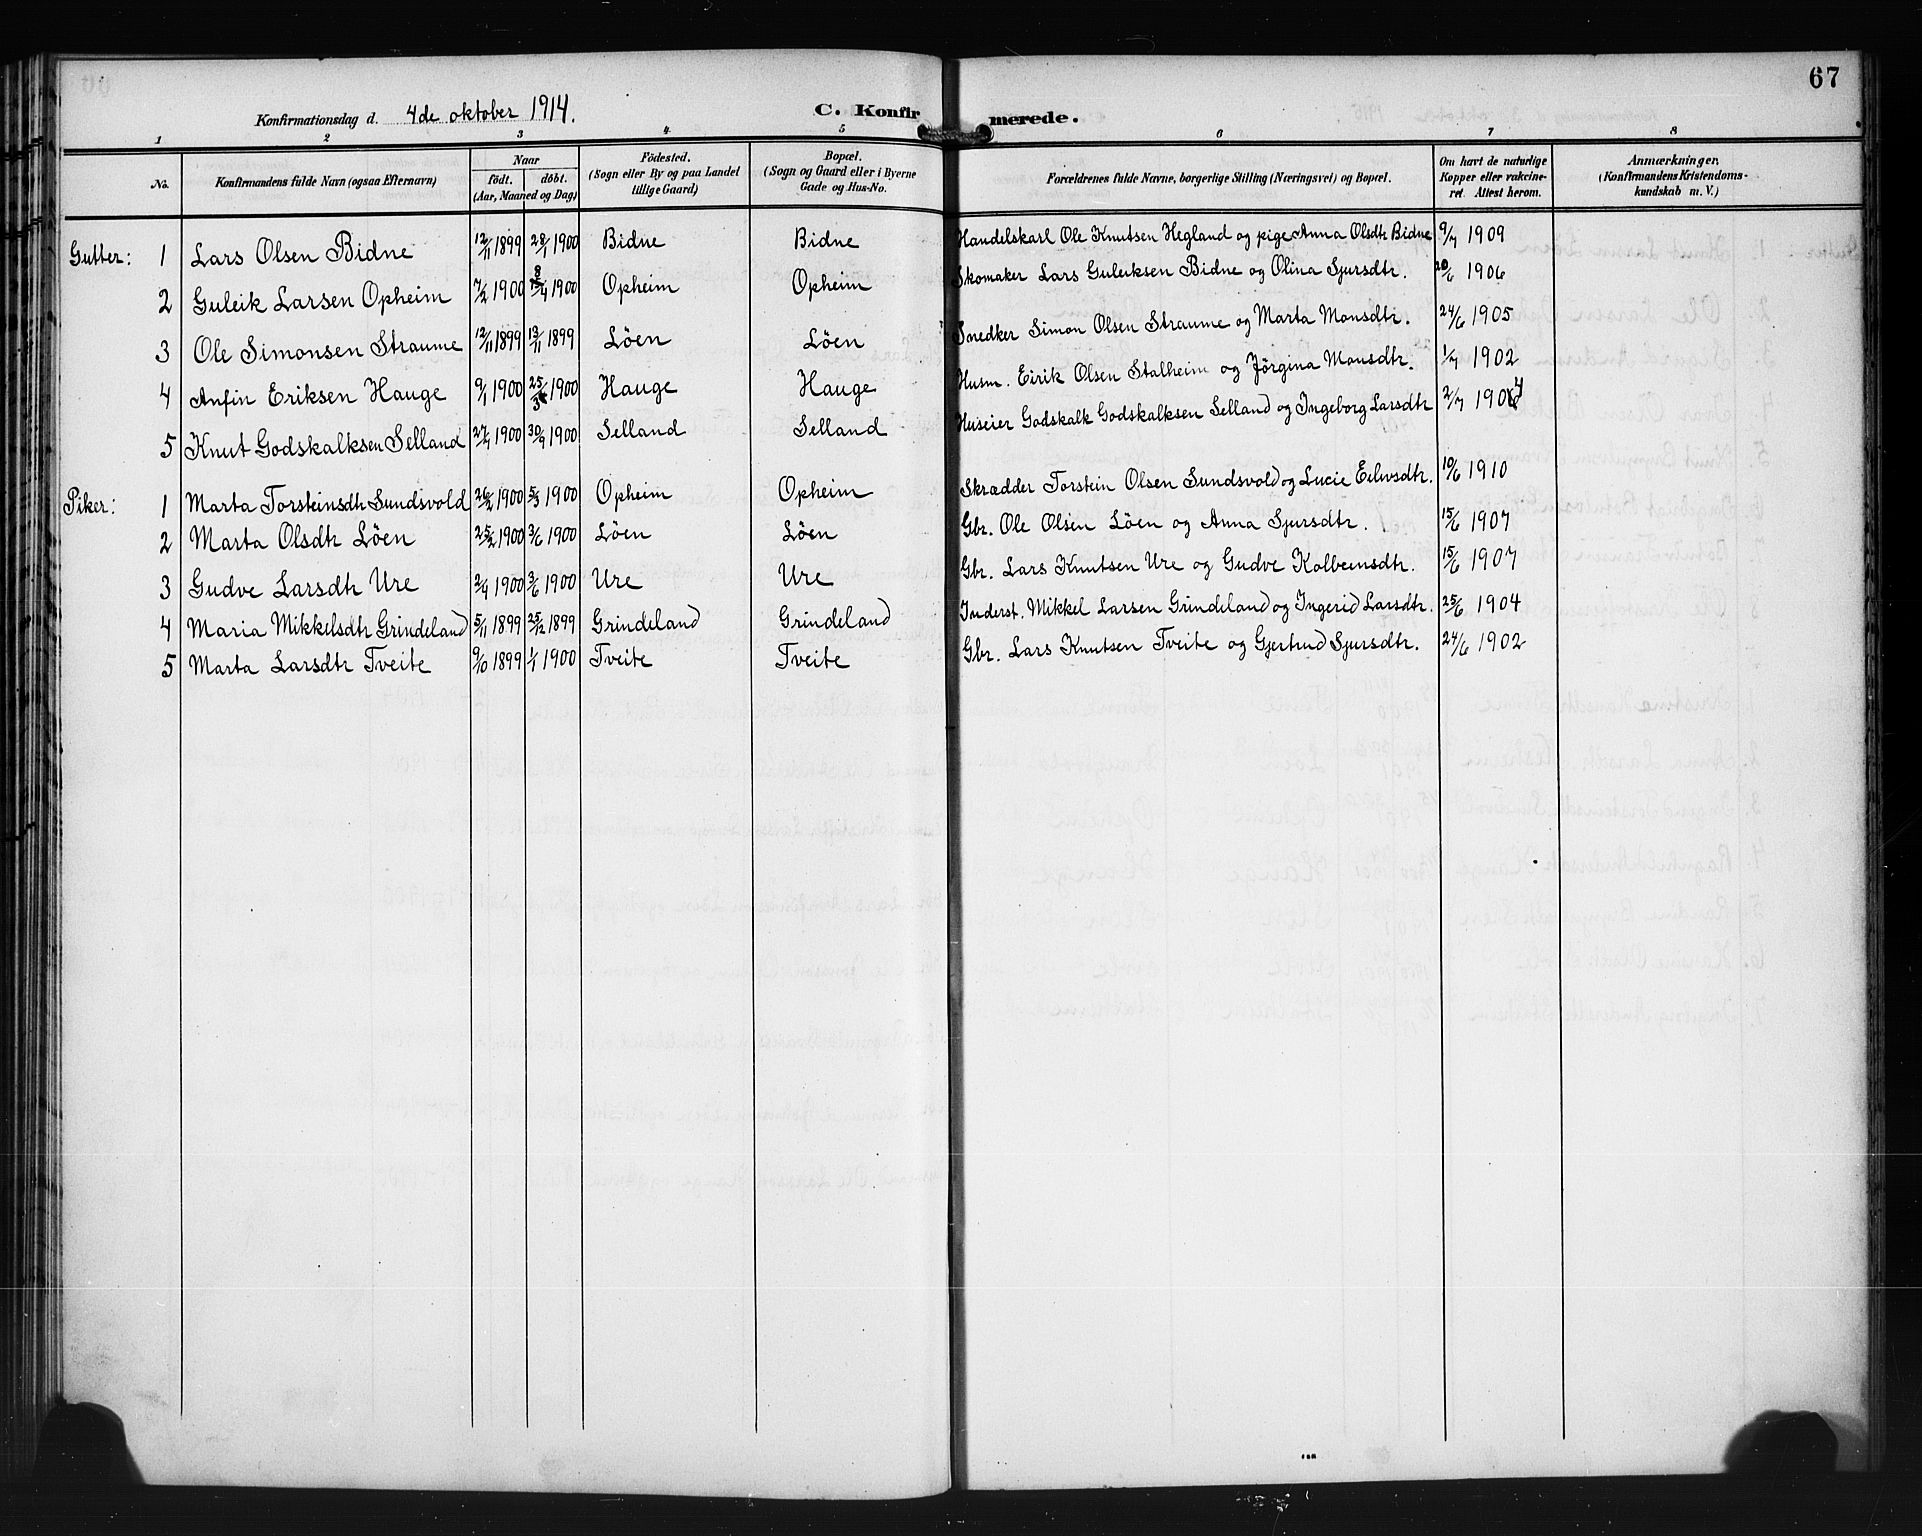 67
Konfirmationsdag d. 4de oktober 1914. C. Konfirmerede.
1 2 3 4 5 6 7 8
No. Konfirmandens fulde Navn (ogsaa Efternavn) Naar födt. döbt. (Aar, Maaned og Dag) Födested. (Sogn eller By og paa Landet tillige Gaard) Bopæl. (Sogn og Gaard eller i Byerne Gade og Hus-No. Forældrenes fulde Navne, borgerlige Stilling (Næringsvei) og Bopæl. Om havt de naturlige Kopper eller vakcineret. Attest herom. Anmærkninger. (Konfirmandens Kristendomskundskab m. V.)
Gutter: 1 Lars Olsen Bidne 12/11 1899 28/1 1900 Bidne Bidne Handelskarl Ole Knutsen Hegland og pige Anna Olsdtr Bidne 9/7 1909
2 Guleik Larsen Opheim 7/2 1900 1900 Opheim Opheim Skomaker Lars Guleiksen Bidne og Olina Sjursdtr. 20/6 1906
3 Ole Simonsen Straume 12/11 1899 13/11 1899 Löen Löen Snedker Simon Olsen Straume og Marta Monsdtr. 24/6 1905
4 Anfin Eriksen Hauge 9/1 1900 25/3 1900 Hauge Hauge Husm. Eirik Olsen Stalheim og Jörgina Monsdtr. 1/7 1902
5 Knut Godskalksen Selland 27/7 1900 30/9 1900 Selland Selland Huseier Godskalk Godskalksen Selland og Ingeborg Larsdtr 2/7
Piker: 1 Marta Torsteinsdtr Sundsvold 26/2 1900 5/3 1900 Opheim Opheim Skrædder Torstein Olsen Sundsvold og Lucie Eilevsdtr. 10/6 1910
2 Marta Olsdtr Löen 25/2 1900 3/6 1900 Löen Löen Gbr. Ole Olsen Löen og Anna Sjursdtr. 15/6 1907
3 Gudve Larsdtr Ure 2/4 1900 3/6 1900 Ure Ure Gbr. Lars Knutsen Ure og Gudve Kolbeinsdtr. 15/6 1907
4 Maria Mikkelsdtr Grindeland 5/11 1899 25/12 1899 Grindeland Grindeland Inderst. Mikkel Larsen Grindeland og Ingerid Larsdtr. 25/6 1904
5 Marta Larsdtr Tveite 9/10 1899 1/1 1900 Tveite Tveite Gbr. Lars Knutsen Tveite og Gjertrud Sjursdtr. 24/6 1902